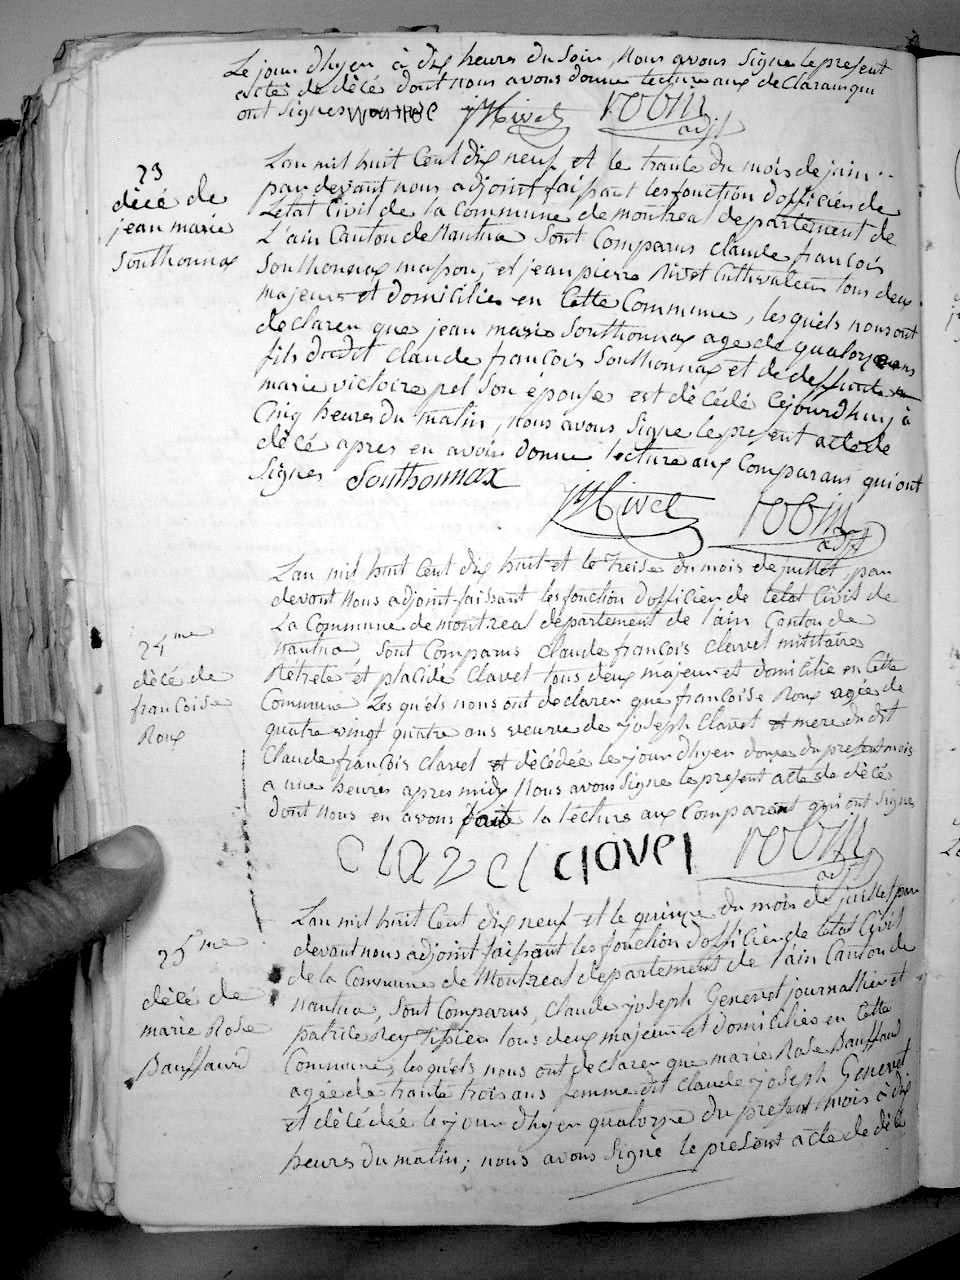 Le jour dhyer à dix heures du Soir, Nous avons Signe le present
acte de décé dont nous avons donne lecture aux declarans qui
ont Signes
robin
adjt
23
décé de
jean marie
Southonnax
L'an mil huit Cent dix neuf et le trante du mois de juin
par devant nous adjoint faisant les fonction d'officier de
L'etat Civil de la Commune de montreal departement de
L'ain Canton de Nantua Sont Comparus claude françois
Southonnax masson, et jean pierre Rivet Cultivateur tous deux
majeurs et domicilies en Cette Commune, lesquels nous ont
declarer que jean marie Southonnax age de quatorze ans
fils dudit claude françois Southonnax et de deffunte
marie victoire pel Son épouse est décédé Cejourdhuy à
Cinq heures du matin, nous avons Signe le present acte de
décé apres en avoir donne lecture aux Comparans qui ont
Signes Southonnax
Rivet robin
adjt
24me
décé de
francoise
Roux
L'an mil huit Cent dix huit et le treise du mois de juillet, par
devant Nous adjoint faissant les fonction d'officier de letat Civil de
La Commune de montreal departement de l'ain Canton de
nantua, Sont Comparus Claude françois clavel militaire
Rétreté et placide Clavel tous deux majeur et domicilie en Cette
Commune Lesquels nous ont declarer que françoise Roux agée de
quatre vingt quatre ans veuve de joseph Clavel et mere du dit
Claude francois clavel et décédée le jour dhyer douze du present mois
a une heures apres midy Nous avons Signe le present acte de décé
dont Nous en avons faite la lecture aux Comparant qui ont Signe
clavel clavel robin
adjt
25me
décé de
marie Rose
Bauffaurd
L'an mil huit Cent dix neuf et le quinze du mois de juillet par
devant nous adjoint faissant les fonction d'officier de letat Civil
de la Commune de Montreal departement de l'ain Canton de
nantua, Sont Comparus, Claude joseph Genevet journallier et
patrice Rey Tissier tous deux majeur et domicilies en Cette
Commune, lesquels nous ont declarer que marie Rose Bauffaurd
agée de trante trois ans femme dit Claude joseph Genevet
et décédée le jour dhyer quatorze du present mois à dix
heures du matin; nous avons Signe le present acte de décé